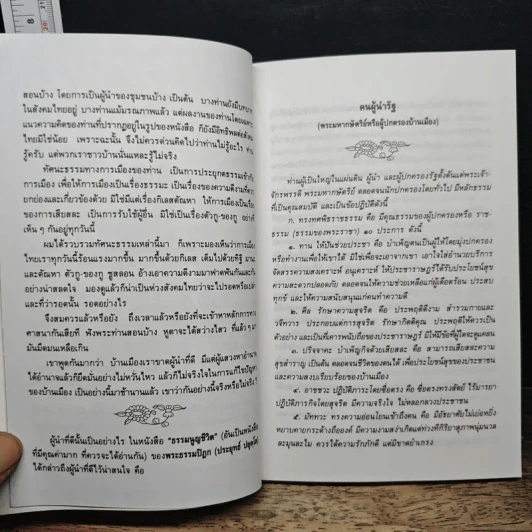 สอนบ้าง โดยการเป็นผู้นำของชุมชนบ้าง เป็นต้น บางท่านยังมีบทบาท
ในสังคมไทยอยู่ บางท่านแม้มรณภาพแล้ว แต่ผลงานของท่านโดยเฉพาะ
แนวความคิดของท่านที่ปรากฏอยู่ในรูปของหนังสือ ก็ยังมีอิทธิพลต่อสังคม
ไทยมิใช่น้อย เพราะฉะนั้น จึงไม่ควรด่วนคิดไปว่าท่านไม่รู้อะไร ท่าน
รู้ครับ แต่พวกเราชาวบ้านนั่นแหละรู้ไม่จริง
ทัศนะธรรมทางการเมืองของท่าน เป็นการประยุกต์ธรรมเข้ากับ
การเมือง เพื่อให้การเมืองเป็นเรื่องธรรมะ เป็นเรื่องของความดีงามที่ควร
ยกย่องและเกี่ยวข้องด้วย มิใช่มีแต่เรื่องกิเลสตัณหา ให้การเมืองเป็นเรื่อง
ของการเสียสละ เป็นการรับใช้ผู้อื่น มิใช่เป็นเรื่องตัวกู-ของกู อย่างที่
เห็น ๆ กันอยู่ทุกวันนี้
ผมได้รวบรวมทัศนะธรรมเหล่านี้มา ก็เพราะมองเห็นว่าการเมือง
ไทยเราทุกวันนี้ร้อนแรงมากขึ้น มากขึ้นด้วยกิเลส เต็มไปด้วยทิฐิ มานะ
และตัณหา ตัวกู-ของกู ชูสลอน อ้างเอาความดีงามมาฟาดฟันกันและกัน
อย่างน่าสลดใจ มองดูแล้วก็น่าเป็นห่วงสังคมไทยว่าจะไปรอดหรือเปล่า
และที่ว่ารอดนั้น รอดอย่างไร
จึงสมควรแล้วหรือยัง ถึงเวลาแล้วหรือยังที่จะเข้าหาหลักการทาง
ศาสนากันเสียที ฟังพระท่านสอนบ้าง หูตาจะได้สว่างไสว ที่แล้ว ๆ มา
มันมืดมนเหลือเกิน
เขาพูดกันมากว่า บ้านเมืองเราขาดผู้นำที่ดี มีแต่ผู้แสวงหาอำนาจ
ได้อำนาจแล้วก็ยึดมั่นอย่างไม่หวั่นไหว แล้วก็ไม่จริงใจในการแก้ไขปัญหา
ของบ้านเมือง เป็นอย่างนี้มาช้านานแล้ว เขาว่ากันอย่างนี้จริงหรือไม่จริง
ผู้นำที่ดีนั้นเป็นอย่างไร ในหนังสือ "ธรรมนูญชีวิต" (อันเป็นหนังสือ
ที่มีคุณค่ามาก ที่ควรจะได้อ่านกัน) ของพระธรรมปิฎก (ประยุทธ์ ปยุตฺโต)
ได้กล่าวถึงผู้นำที่ดีไว้น่าสนใจ คือ
คนผู้นำรัฐ
(พระมหากษัตริย์หรือผู้ปกครองบ้านเมือง)
ท่านผู้เป็นใหญ่ในแผ่นดิน ผู้นำ และผู้ปกครองรัฐตั้งต้นแต่พระเจ้า-
จักรพรรดิ พระมหากษัตริย์ ตลอดจนนักปกครองโดยทั่วไป มีหลักธรรม
ที่เป็นคุณสมบัติ และเป็นข้อปฏิบัติดังนี้
ก. ทรงทศพิธราชธรรม คือ มีคุณธรรมของผู้ปกครองหรือ ราช-
ธรรม (ธรรมของพระราชา) ๑๐ ประการ ดังนี้
๑. ทาน ให้ปันช่วยประชา คือ บำเพ็ญตนเป็นผู้ให้โดยมุ่งปกครอง
หรือทำงานเพื่อให้เขาได้ มิใช่เพื่อจะเอาจากเขา เอาใจใส่อำนวยบริการ
จัดสรรความสงเคราะห์ อนุเคราะห์ ให้ประชาราษฎร์ได้รับประโยชน์สุข
ความสะดวกปลอดภัย ตลอดจนให้ความช่วยเหลือแก่ผู้เดือดร้อน ประสบ
ทุกข์ และให้ความสนับสนุนแก่คนทำความดี
๒. ศีล รักษาความสุจริต คือ ประพฤติดีงาม สำรวมกายและ
วจีทวาร ประกอบแต่การสุจริต รักษากิตติคุณ ประพฤติให้ควรเป็น
ตัวอย่าง และเป็นที่เคารพนับถือของประชาราษฎร์ มิให้มีข้อที่ผู้ใดจะดูแคลน
๓. ปริจจาคะ บำเพ็ญกิจด้วยเสียสละ คือ สามารถเสียสละความ
สุขสำราญ เป็นต้น ตลอดจนชีวิตของตนได้ เพื่อประโยชน์สุขของประชาชน
และความสงบเรียบร้อยของบ้านเมือง
๔. อาชชวะ ปฏิบัติภาระโดยซื่อตรง คือ ซื่อตรงทรงสัตย์ ไร้มารยา
ปฏิบัติภารกิจโดยสุจริต มีความจริงใจ ไม่หลอกลวงประชาชน
๕. มัททวะ ทรงความอ่อนโยนเข้าถึงคน คือ มีอัธยาศัยไม่เย่อหยิ่ง
หยาบคายกระด้างถือองค์ มีความงามสง่าเกิดแต่ท่วงทีกิริยาสุภาพนุ่มนวล
ละมุนละไม ควรได้ความรักภักดี แต่มิขาดยำเกรง